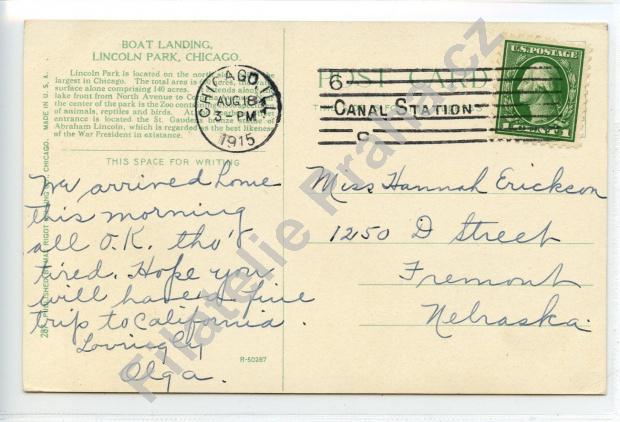 BOAT LANDING,
LINCOLN PARK, CHICAGO.
Lincoln Park is located on the north
largest in Chicago. The total area is
surface alone comprising 140 acres. extends along
lake front from North Avenue to
the center of the park is the Zoo
of animals, reptiles and birds. At
entrance is located the St. Gaudens bronze statue of
Abraham Lincoln, which is regarded as the best likeness
of the War President in existence.
THIS SPACE FOR WRITING
We arrived home
this morning
all O.K. tho'
tired. Hope you
will have a fine
trip to California.
Lovingly
Olga.
CHICAGO, ILL.
AUG 18
3 PM
1915
6
CANAL STATION
C
POST CARD
U.S. POSTAGE
1
Miss Hannah Erickson
1250 D Street
Fremont
Nebraska.
R-50287
MADE IN U.S.A.
CHICAGO.
PUBLISHED BY MAX RIGOT
Filatelie Praha.cz